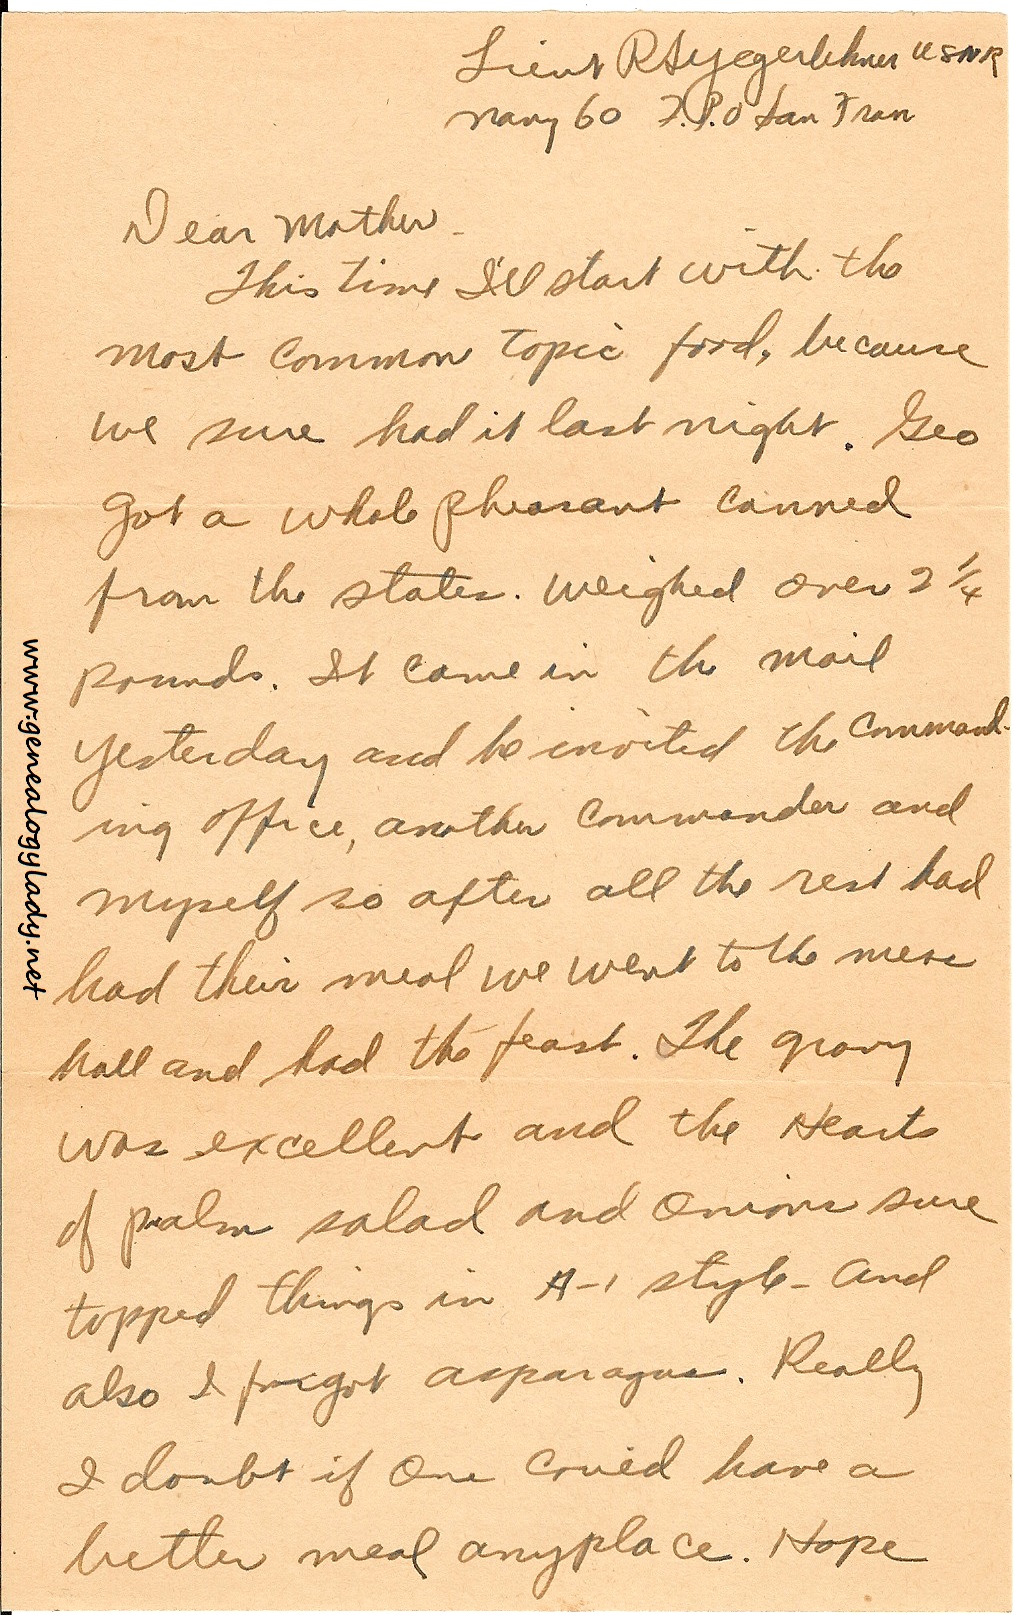 Lieut R S Yegerlehner USNR
Navy 60 F.P.O San Fran
Dear Mother -
This time I'll start with the
most common topic food, because
we sure had it last night. Geo
got a whole pheasant canned
from the states. Weighed over 2 1/4
pounds. It came in the mail
yesterday and he invited the Command-
ing office, another commander and
myself so after all the rest had
had their meal we went to the mess
hall and had the feast. The gravy
was excellent and the Hearts
of palm salad and onions sure
topped things in A-1 style - And
also I forgot asparagus. Really
I doubt if one could have a
better meal anyplace. Hope
www.genealogylady.net